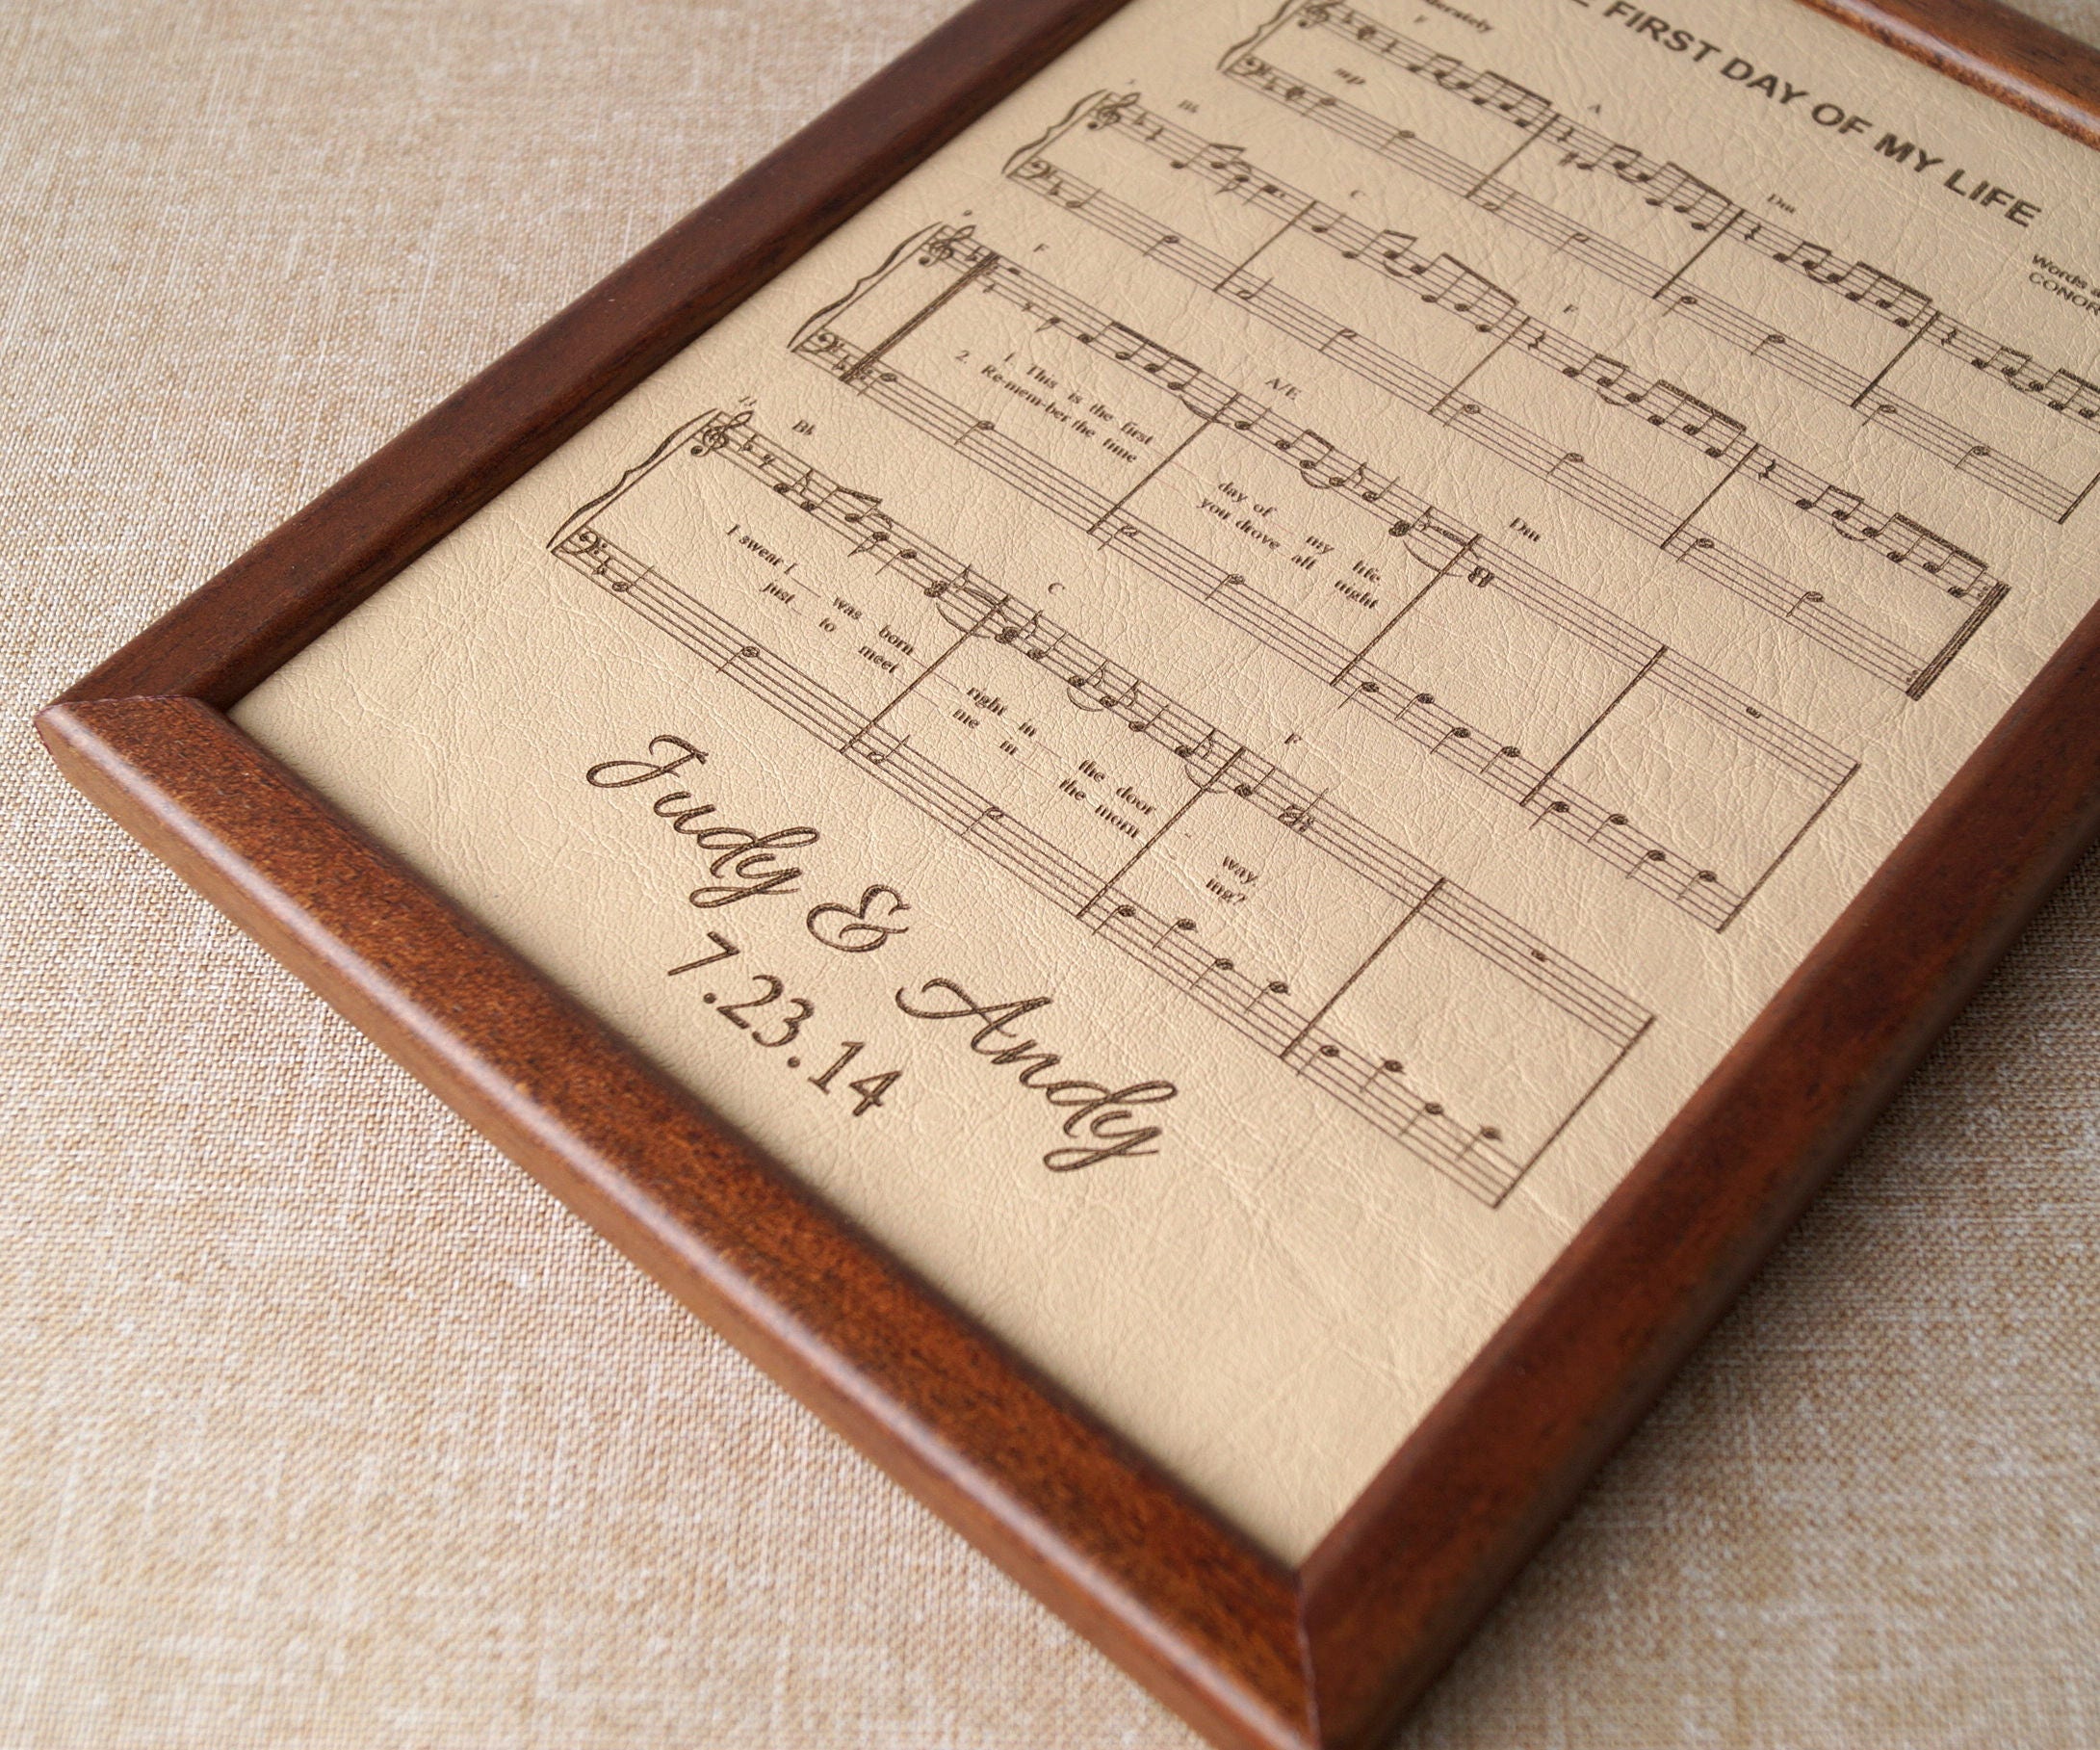 FIRST DAY OF MY LIFE
Words
CONOR
F A Dm
mp
Bb C F
9
F A/E Dm
1. This is the first day of my life
2. Re-mem-ber the time you drove all night
Bb C F
I swear I was born right in the door way.
just to meet me in the morn ing?
Judy & Andy
7.23.14